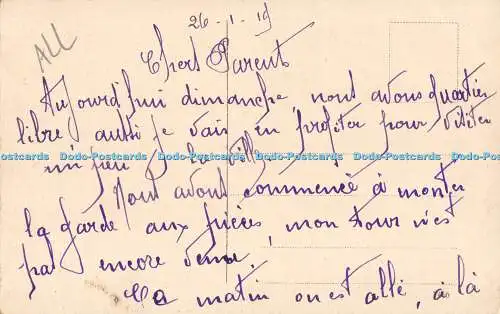 ALL
26-1-19
Chers Parents
Aujourd'hui dimanche, nous avons quartier
libre aussi je vais en profiter pour visiter
un peu la ville
Dodo-Postcards Dodo-Postcards Dodo-Postcards Dodo-Postcards Dodo-Postcards
Nous avons commencé à monter
la garde aux pièces, mon tour n'est
pas encore venu,
Ce matin on est allé, à là